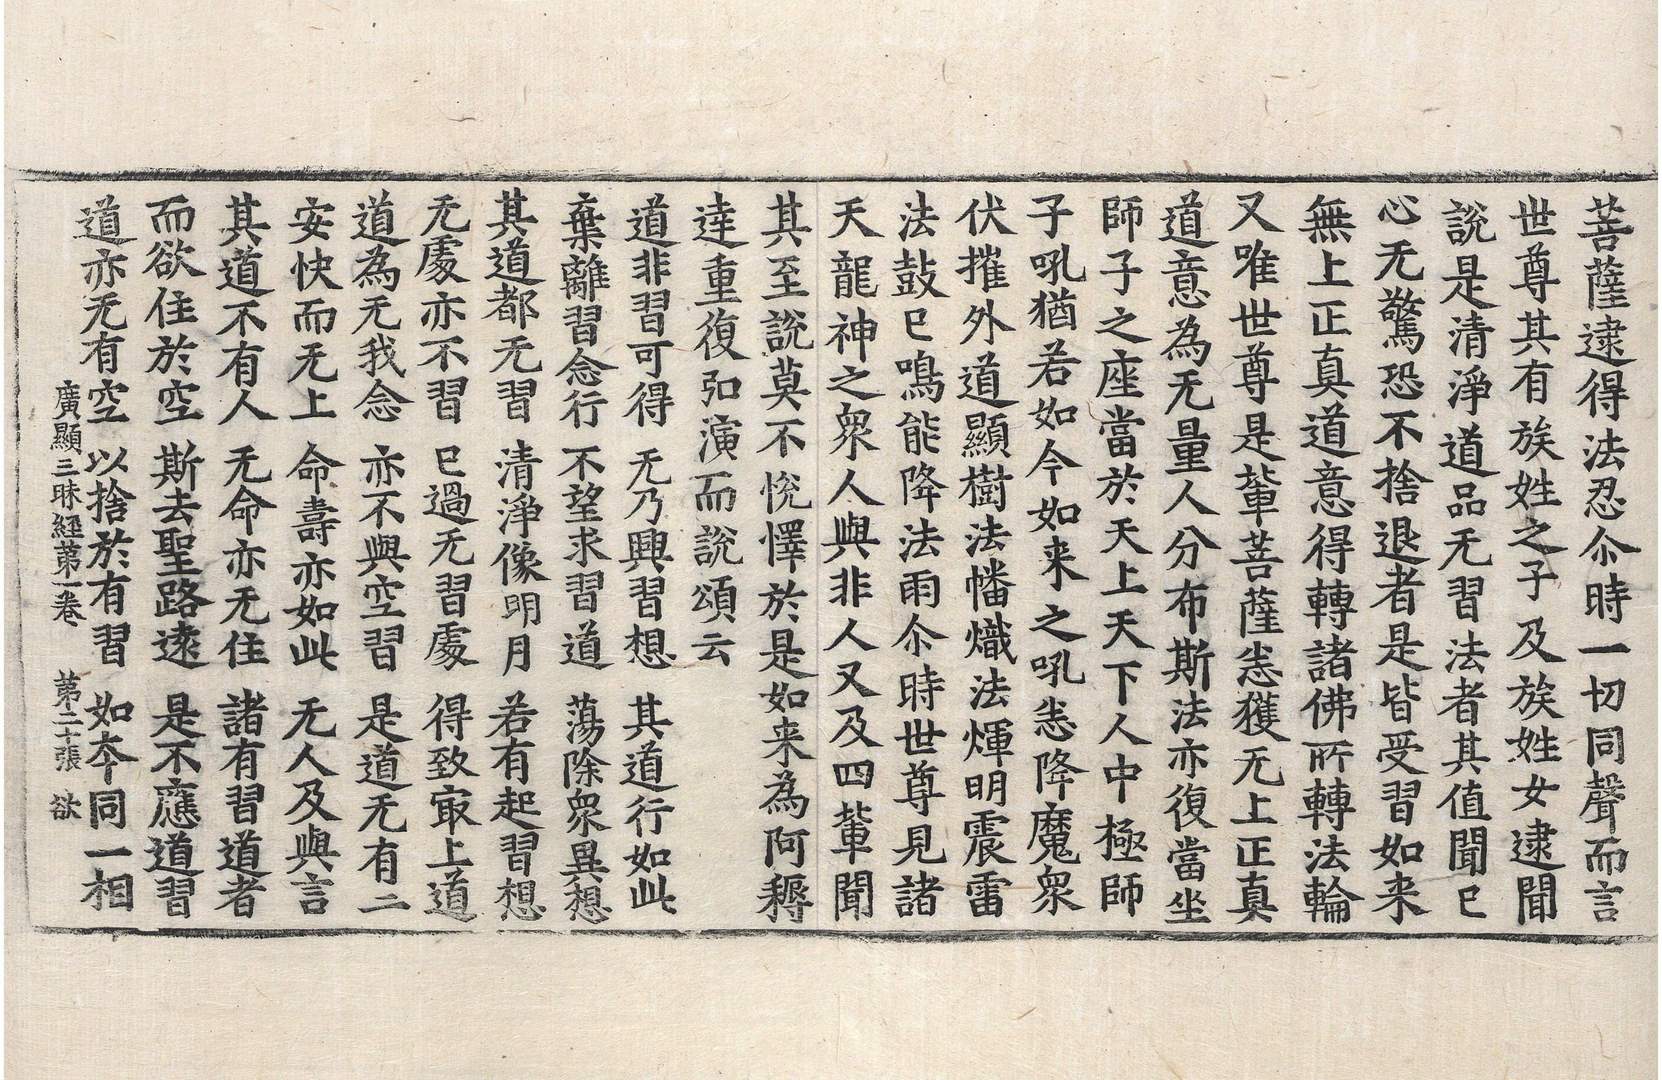 菩薩逮得法忍尒時一切同聲而言
世尊其有族姓之子及族姓女逮聞
說是清淨道品无習法者其值聞已
心无驚恐不捨退者是皆受習如来
無上正真道意得轉諸佛所轉法輪
又唯世尊是軰菩薩悉獲无上正真
道意為无量人分布斯法亦復當坐
師子之座當於天上天下人中極師
子吼猶若如今如来之吼悉降魔衆
伏摧外道顯樹法幡熾法煇明震雷
法鼓已鳴能降法雨尒時世尊見諸
天龍神之衆人與非人又及四軰聞
其至說莫不恱懌於是如来為阿耨
達重復弘演而說頌云
道非習可得　无乃興習想　其道行如此
棄離習念行　不望求習道　蕩除衆異想
其道都无習　清淨像明月　若有起習想
无處亦不習　已過无習處　得致㝡上道
道為无我念　亦不與空習　是道无有二
安快而无上　命壽亦如此　无人及與言
其道不有人　无命亦无住　諸有習道者
而欲住於空　斯去聖路逺　是不應道習
道亦无有空　以捨於有習　如夲同一相
廣顯三昧經苐一卷　苐二十張　欲